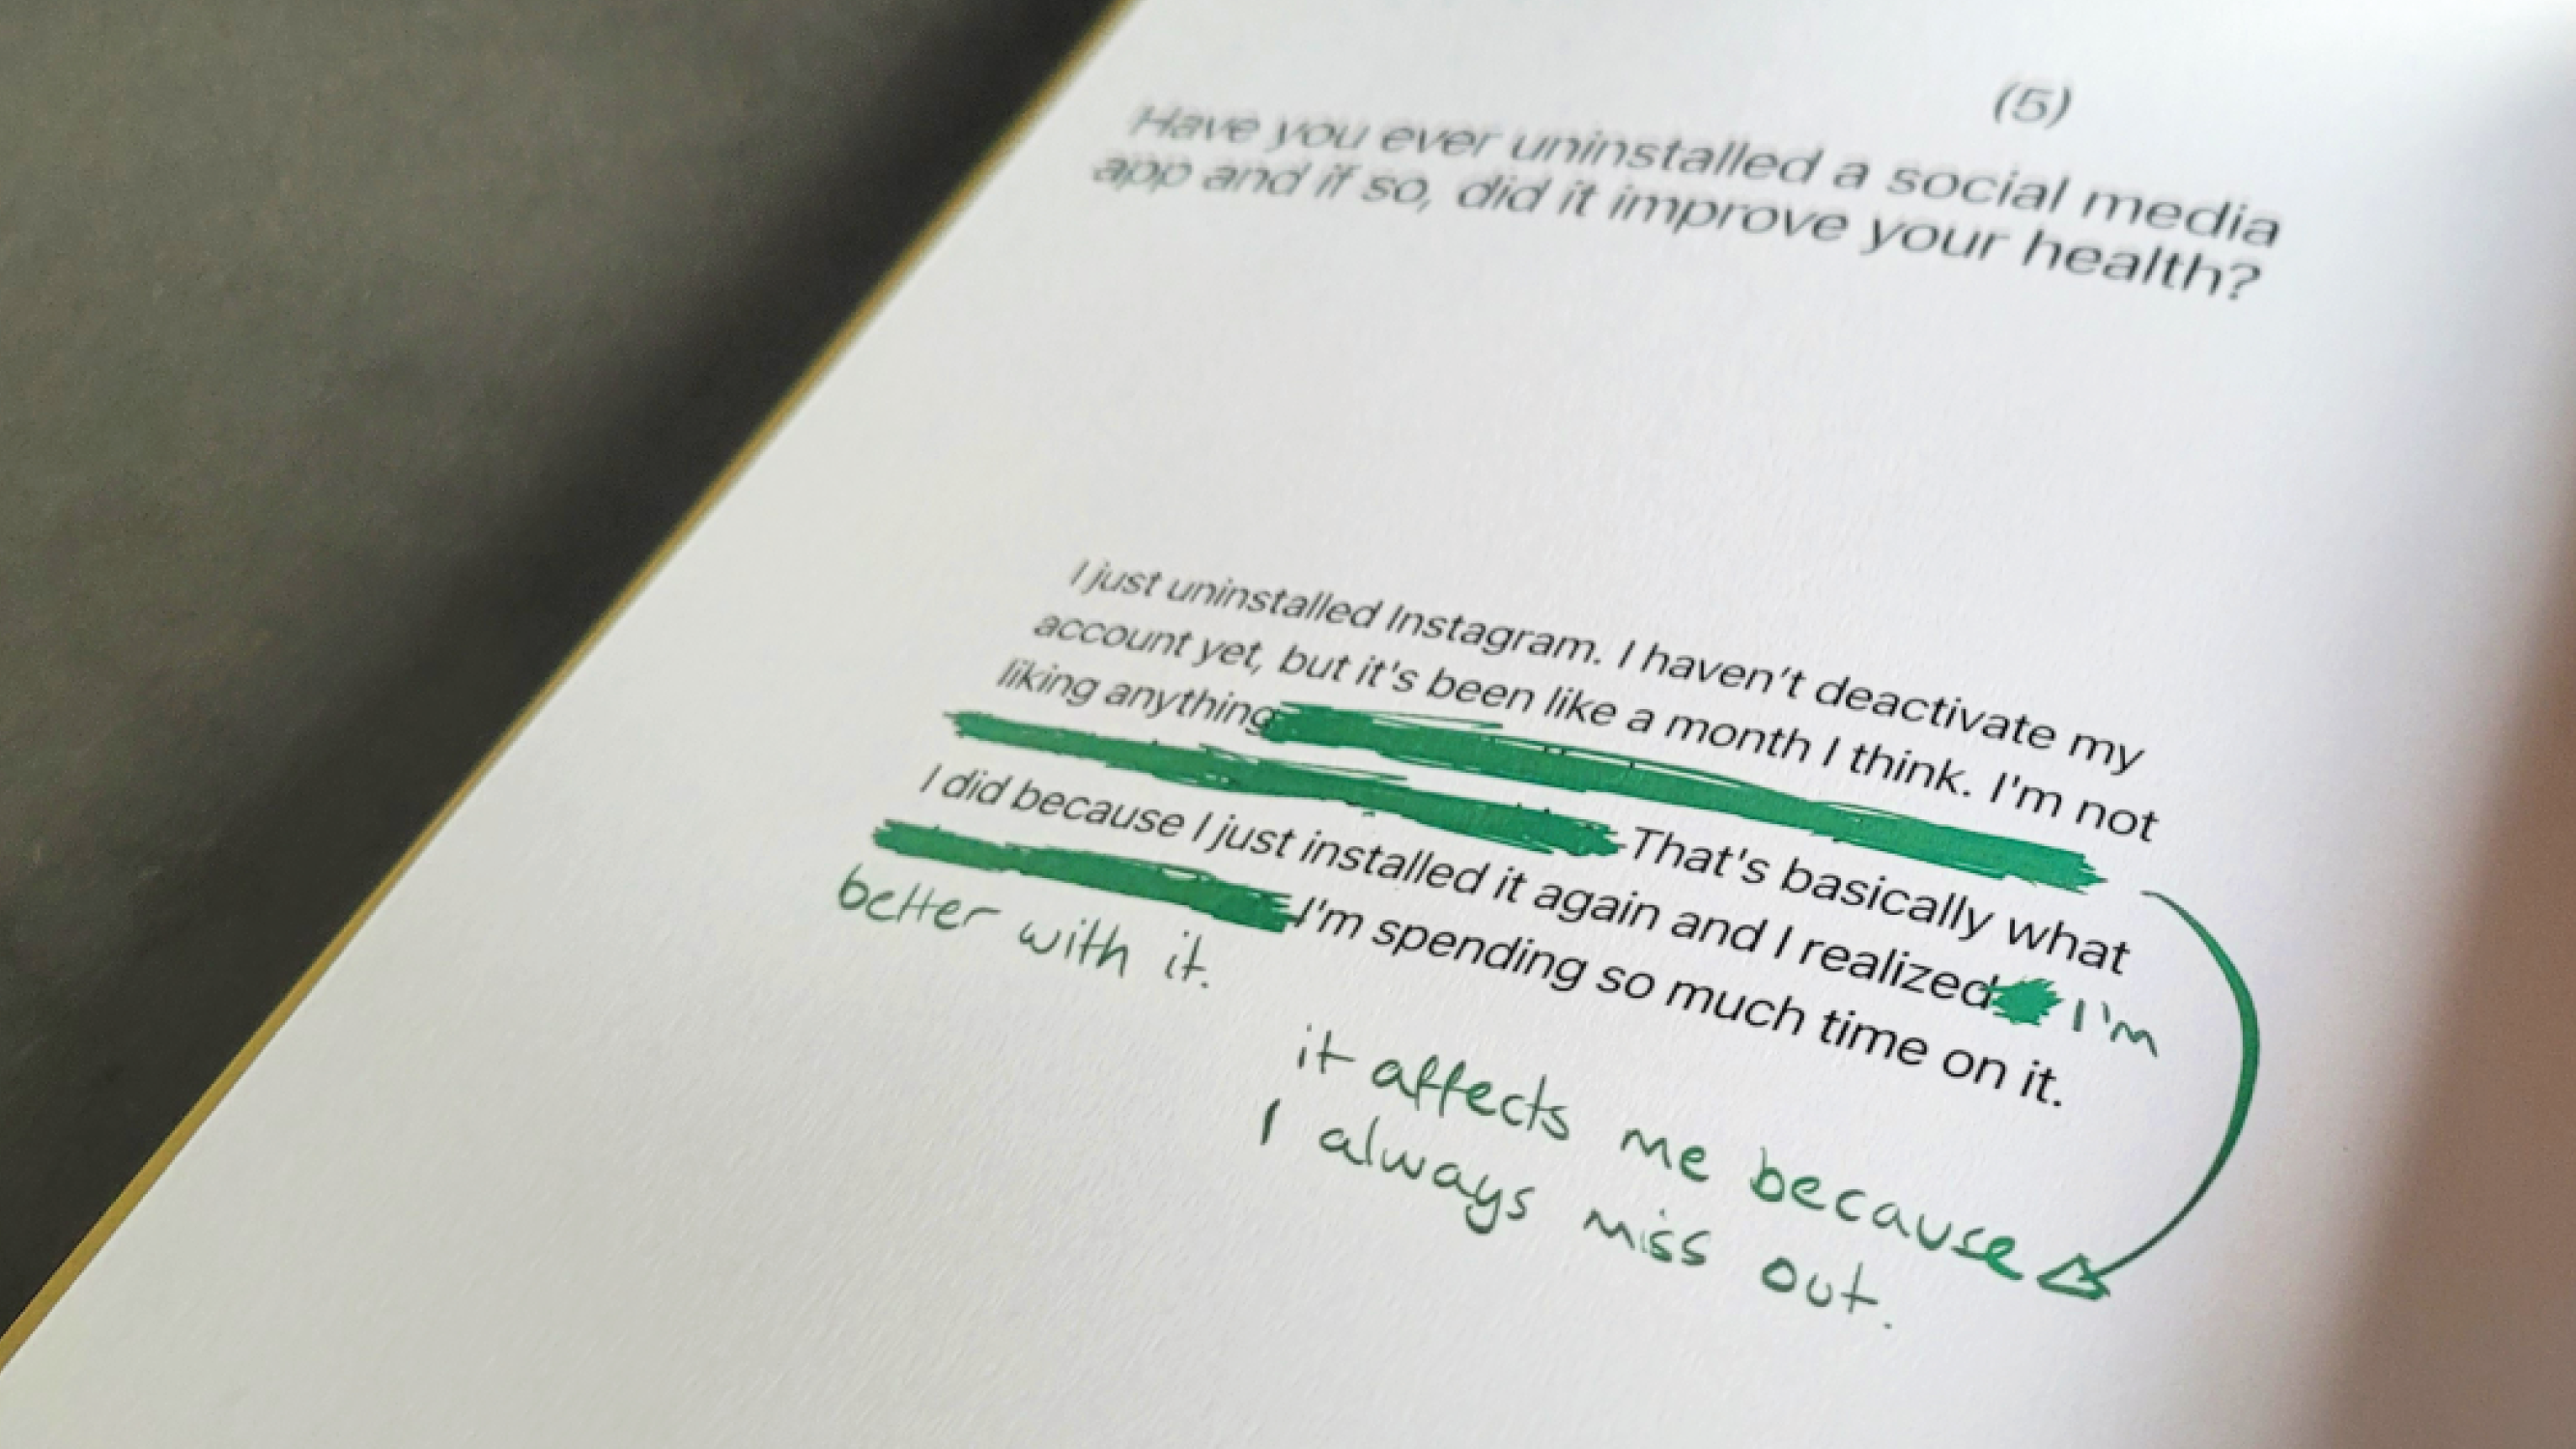 (5)
Have you ever uninstalled a social media
app and if so, did it improve your health?
I just uninstalled Instagram. I haven't deactivate my
account yet, but it's been like a month I think. I'm not
liking anything
That's basically what
I did because I just installed it again and I realized I'm
I'm spending so much time on it.
better with it.
it affects me because
I always miss out.